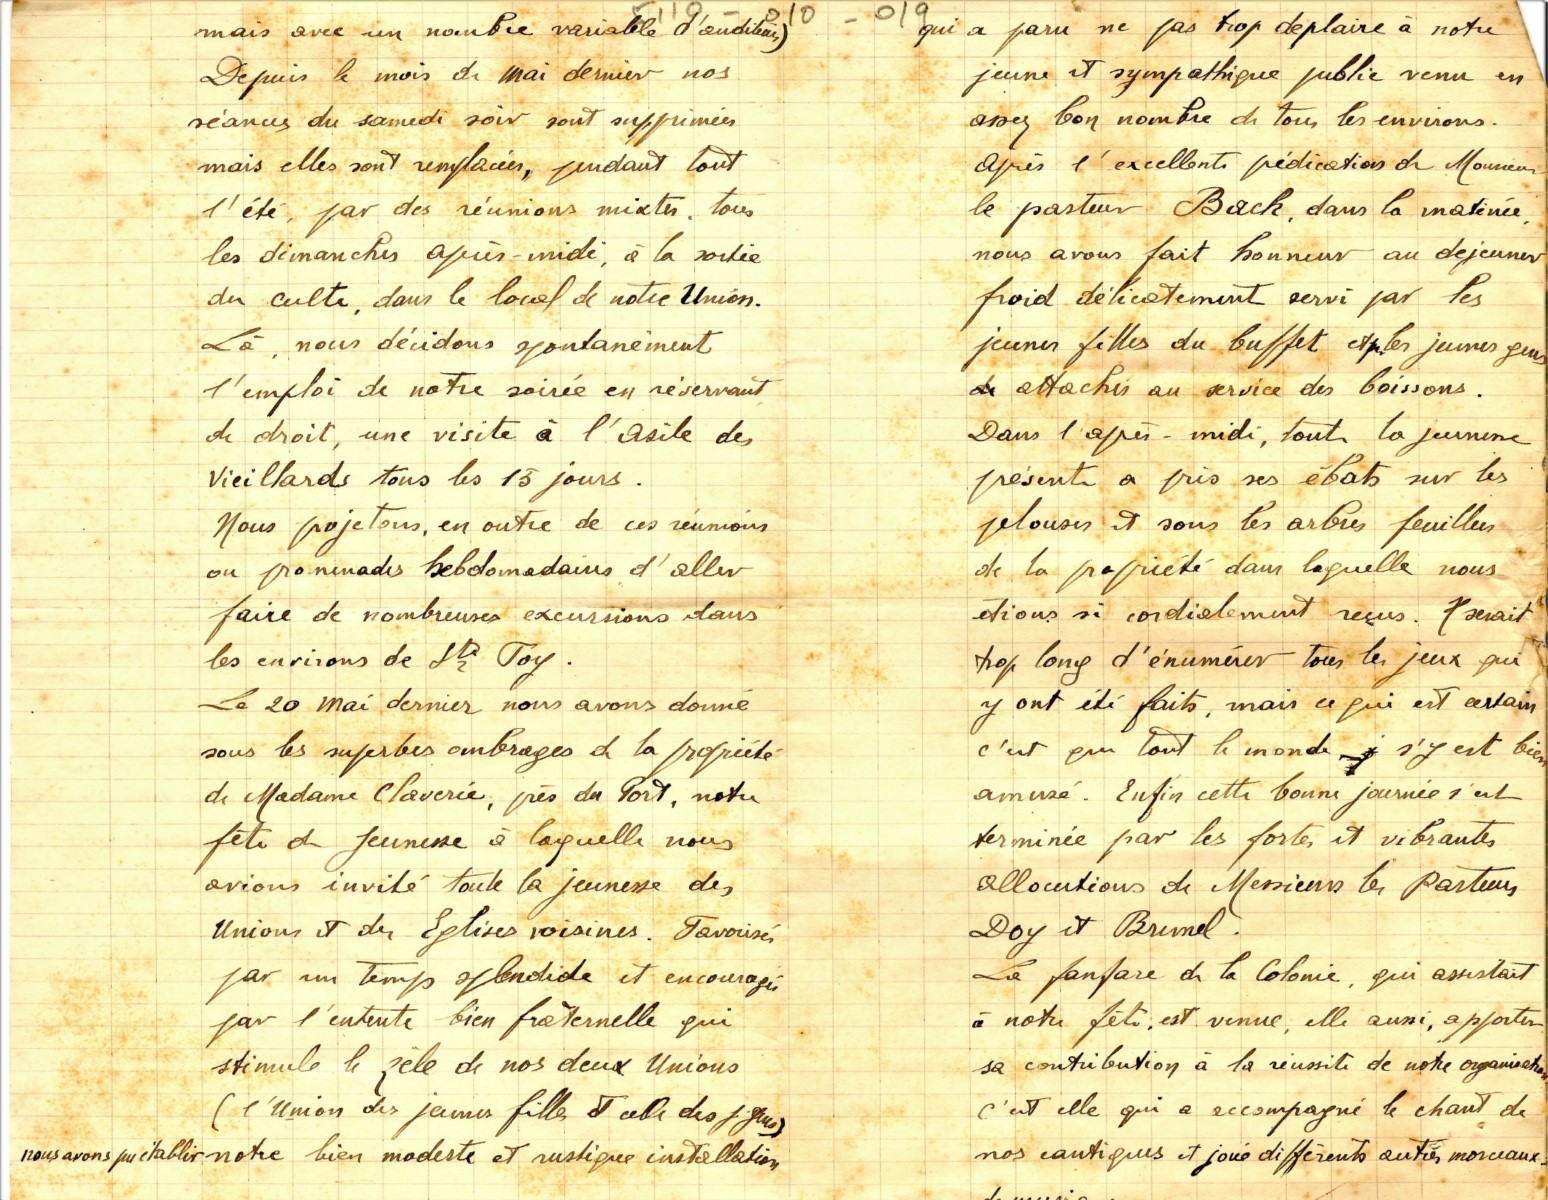 5119 - 010 - 019
mais avec un nombre variable d'auditeurs)
Depuis le mois de Mai dernier nos
séances du samedi soir sont supprimées
mais elles sont remplacées, pendant tout
l'été, par des réunions mixtes, tous
les dimanches après-midi, à la sortie
du culte, dans le local de notre Union.
Là, nous décidons spontanément
l'emploi de notre soirée en réservant,
de droit, une visite à l'Asile des
Vieillards tous les 15 jours.
Nous projetons, en outre de ces réunions
ou promenades hebdomadaires d'aller
faire de nombreuses excursions dans
les environs de Ste Foy.
Le 20 Mai dernier nous avons donné
sous les superbes ombrages de la propriété
de Madame Claverie, près du Port, notre
fête de Jeunesse à laquelle nous
avions invité toute la jeunesse des
Unions et des Eglises voisines. Favorisés
par un temps splendide et encouragés
par l'entente bien fraternelle qui
stimule le zèle de nos deux Unions
(l'Union des jeunes filles et celle des j. gens)
nous avons pu établir notre bien modeste et rustique installation
qui a paru ne pas trop déplaire à notre
jeune et sympathique public venu en
assez bon nombre de tous les environs.
Après l'excellente prédication de Monsieur
le pasteur Back, dans la matinée,
nous avons fait honneur au déjeuner
froid délicatement servi par les
jeunes filles du buffet et p. les jeunes gens
de attachés au service des boissons.
Dans l'après-midi, toute la jeunesse
présente a pris ses ébats sur les
pelouses et sous les arbres feuillus
de la propriété dans laquelle nous
étions si cordialement reçus. Il serait
trop long d'énumérer tous les jeux qui
y ont été faits, mais ce qui est certain
c'est que tout le monde s'y est bien
amusé. Enfin cette bonne journée s'est
terminée par les fortes et vibrantes
allocutions de Messieurs les Pasteurs
Doy et Brunel.
La fanfare de la Colonie, qui assistait
à notre fête, est venue, elle aussi, apporter
sa contribution à la réussite de notre organisation
C'est elle qui a accompagné le chant de
nos cantiques et joué différents autres morceaux
de musique.